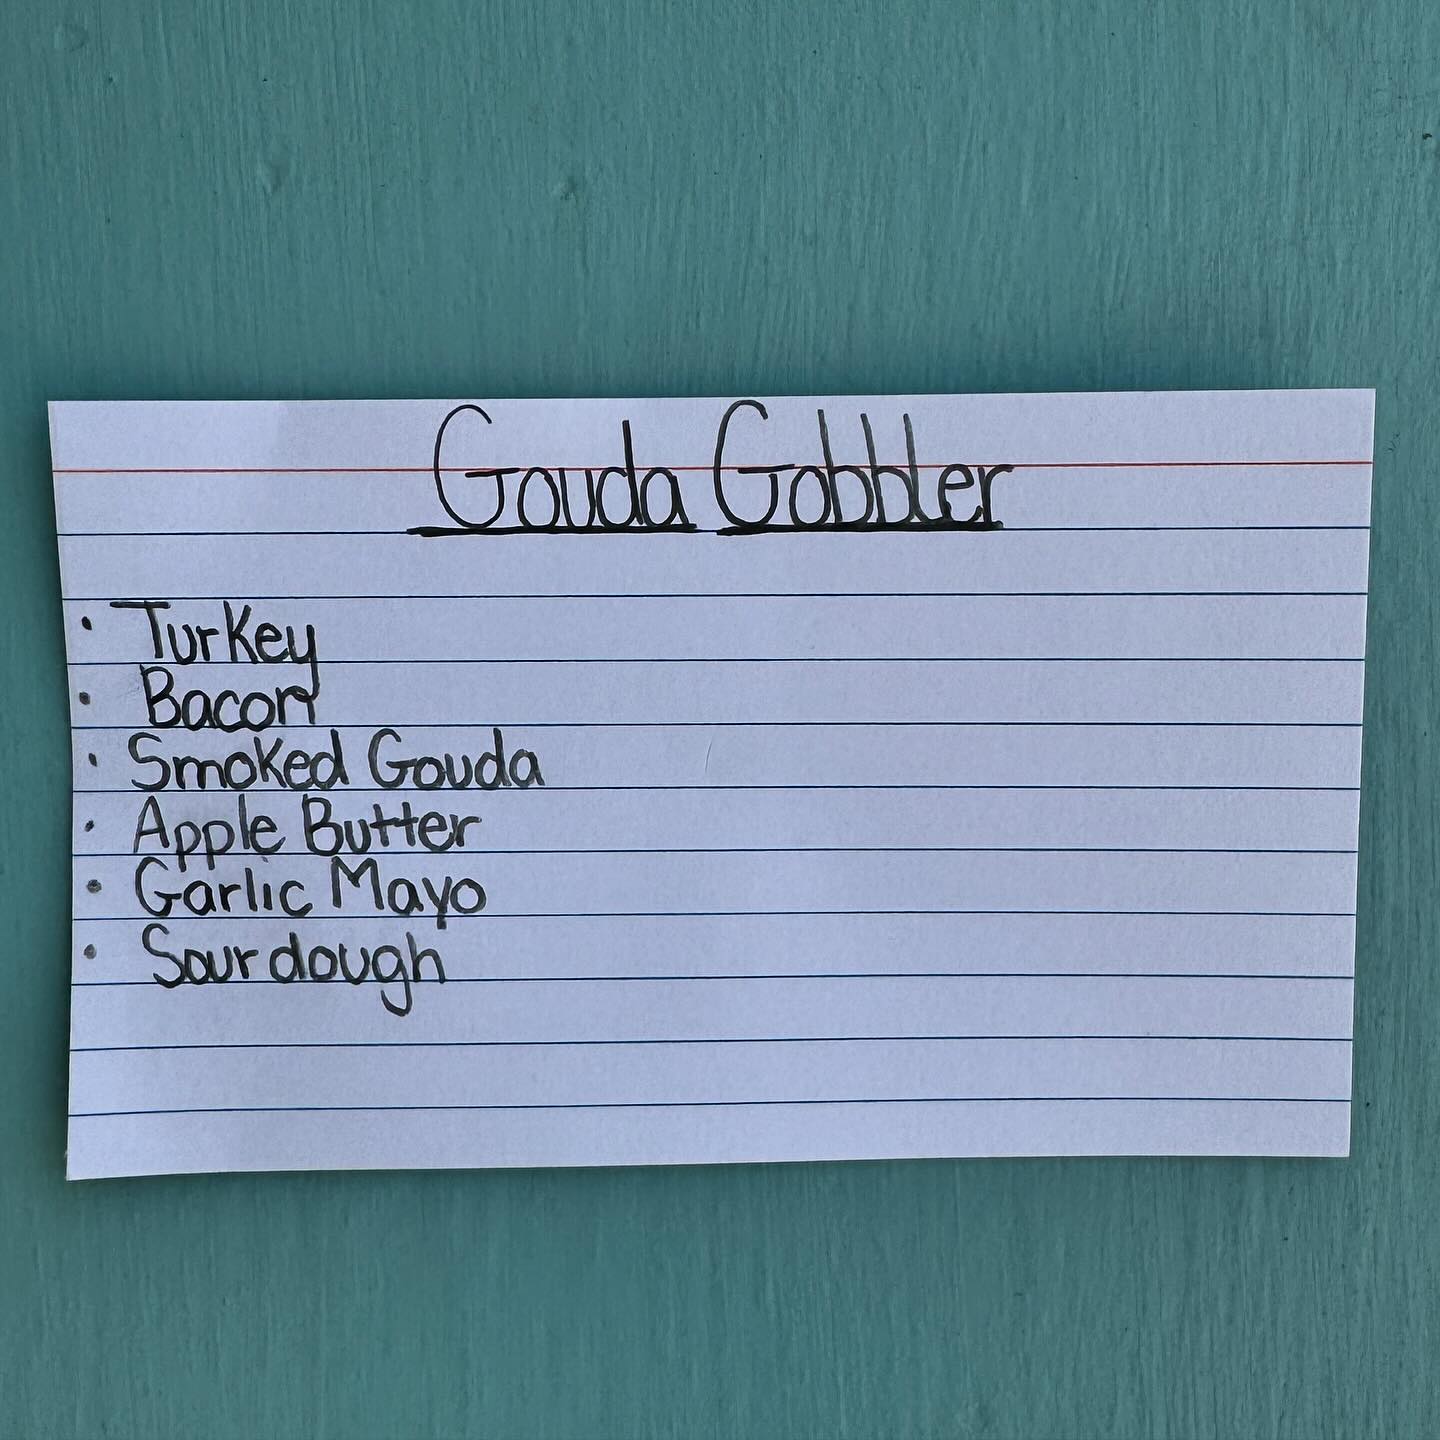 Gouda Gobbler
• Turkey
• Bacon
• Smoked Gouda
• Apple Butter
• Garlic Mayo
• Sourdough